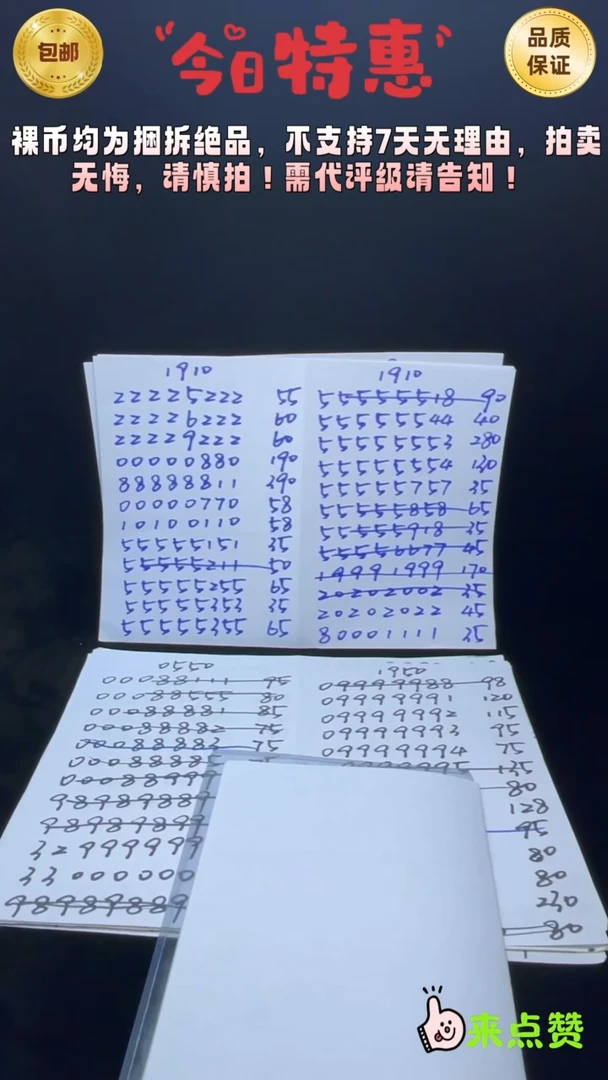 包邮
今日特惠
品质
保证
裸币均为捆拆绝品，不支持7天无理由，拍卖
无悔，请慎拍！需代评级请告知！
1910
22225222 55
22226222 60
22229222 60
00000880 190
88888811 390
00000770 58
10100110 58
55555151 35
55555211 50
55555255 65
55555353 35
55555355 65
1910
55555518 90
55555544 40
55555553 280
55555554 130
55555757 35
55555858 65
55555918 35
55556677 45
19991999 170
20202002 35
20202022 45
80001111 35
0550
00088111 95
00088555 80
00088881 85
00088882 75
00088883 75
00088999
98989889
98989899
32999999
33000000
98989889
1950
09999988 98
09999991 120
09999992 115
09999993 95
09999994 75
135
80
128
95
80
80
230
80
来点赞